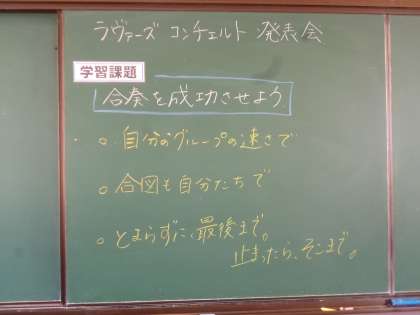 ラヴァーズ コンチェルト 発表会
学習課題
合奏を成功させよう
○ 自分のグループの速さで
○ 合図も自分たちで
○ とまらずに、最後まで。
止まったら、そこまで。